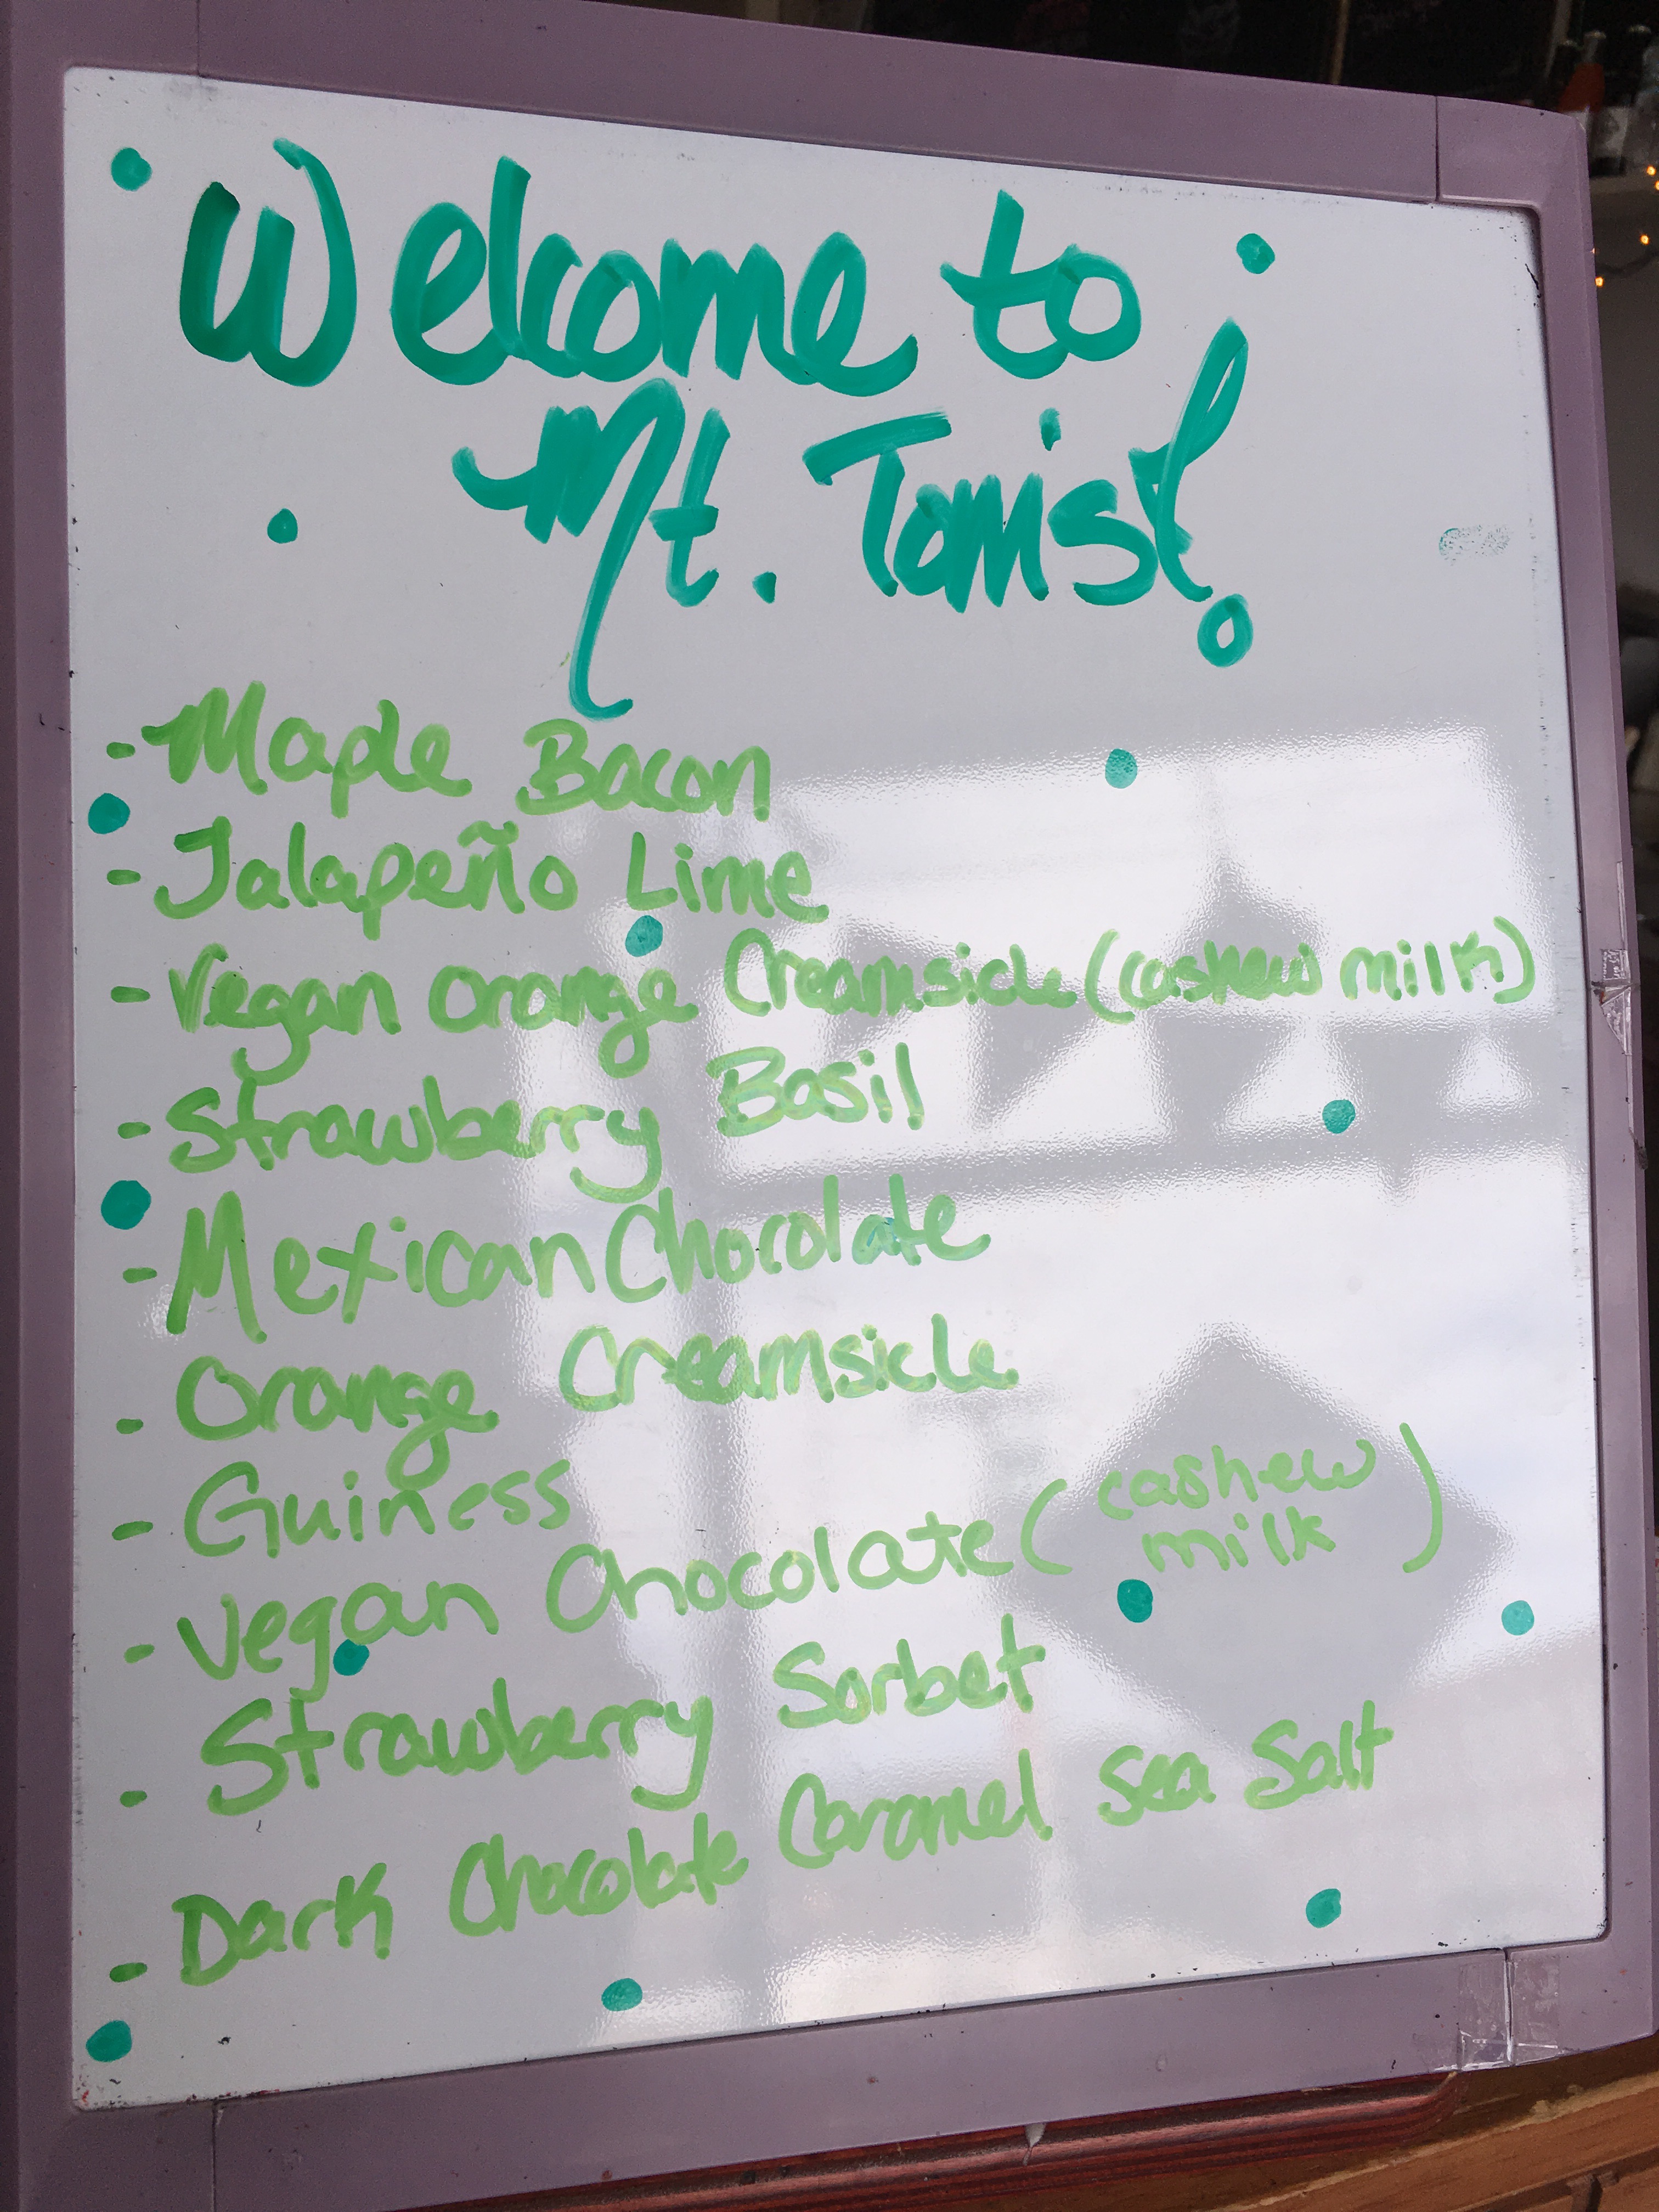 Welcome to
Mt. Tom's!
- Maple Bacon
- Jalapeño Lime
- Vegan Orange Creamsicle (cashew milk)
- Strawberry Basil
- Mexican Chocolate
- Orange Creamsicle
- Guiness
- Vegan Chocolate (cashew
milk)
- Strawberry Sorbet
- Dark Chocolate Caramel Sea Salt